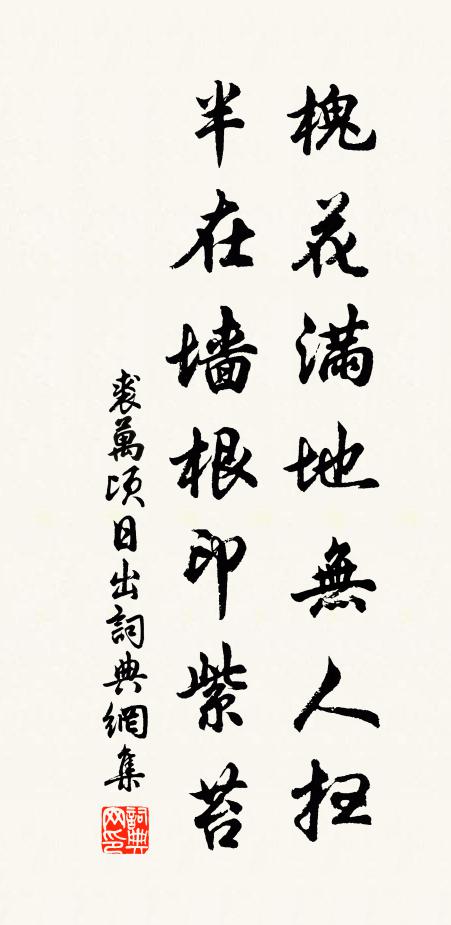 槐花滿地無人扫
半在墙根印紫苔
裘萬頃日出詞典網集
詞典
网印